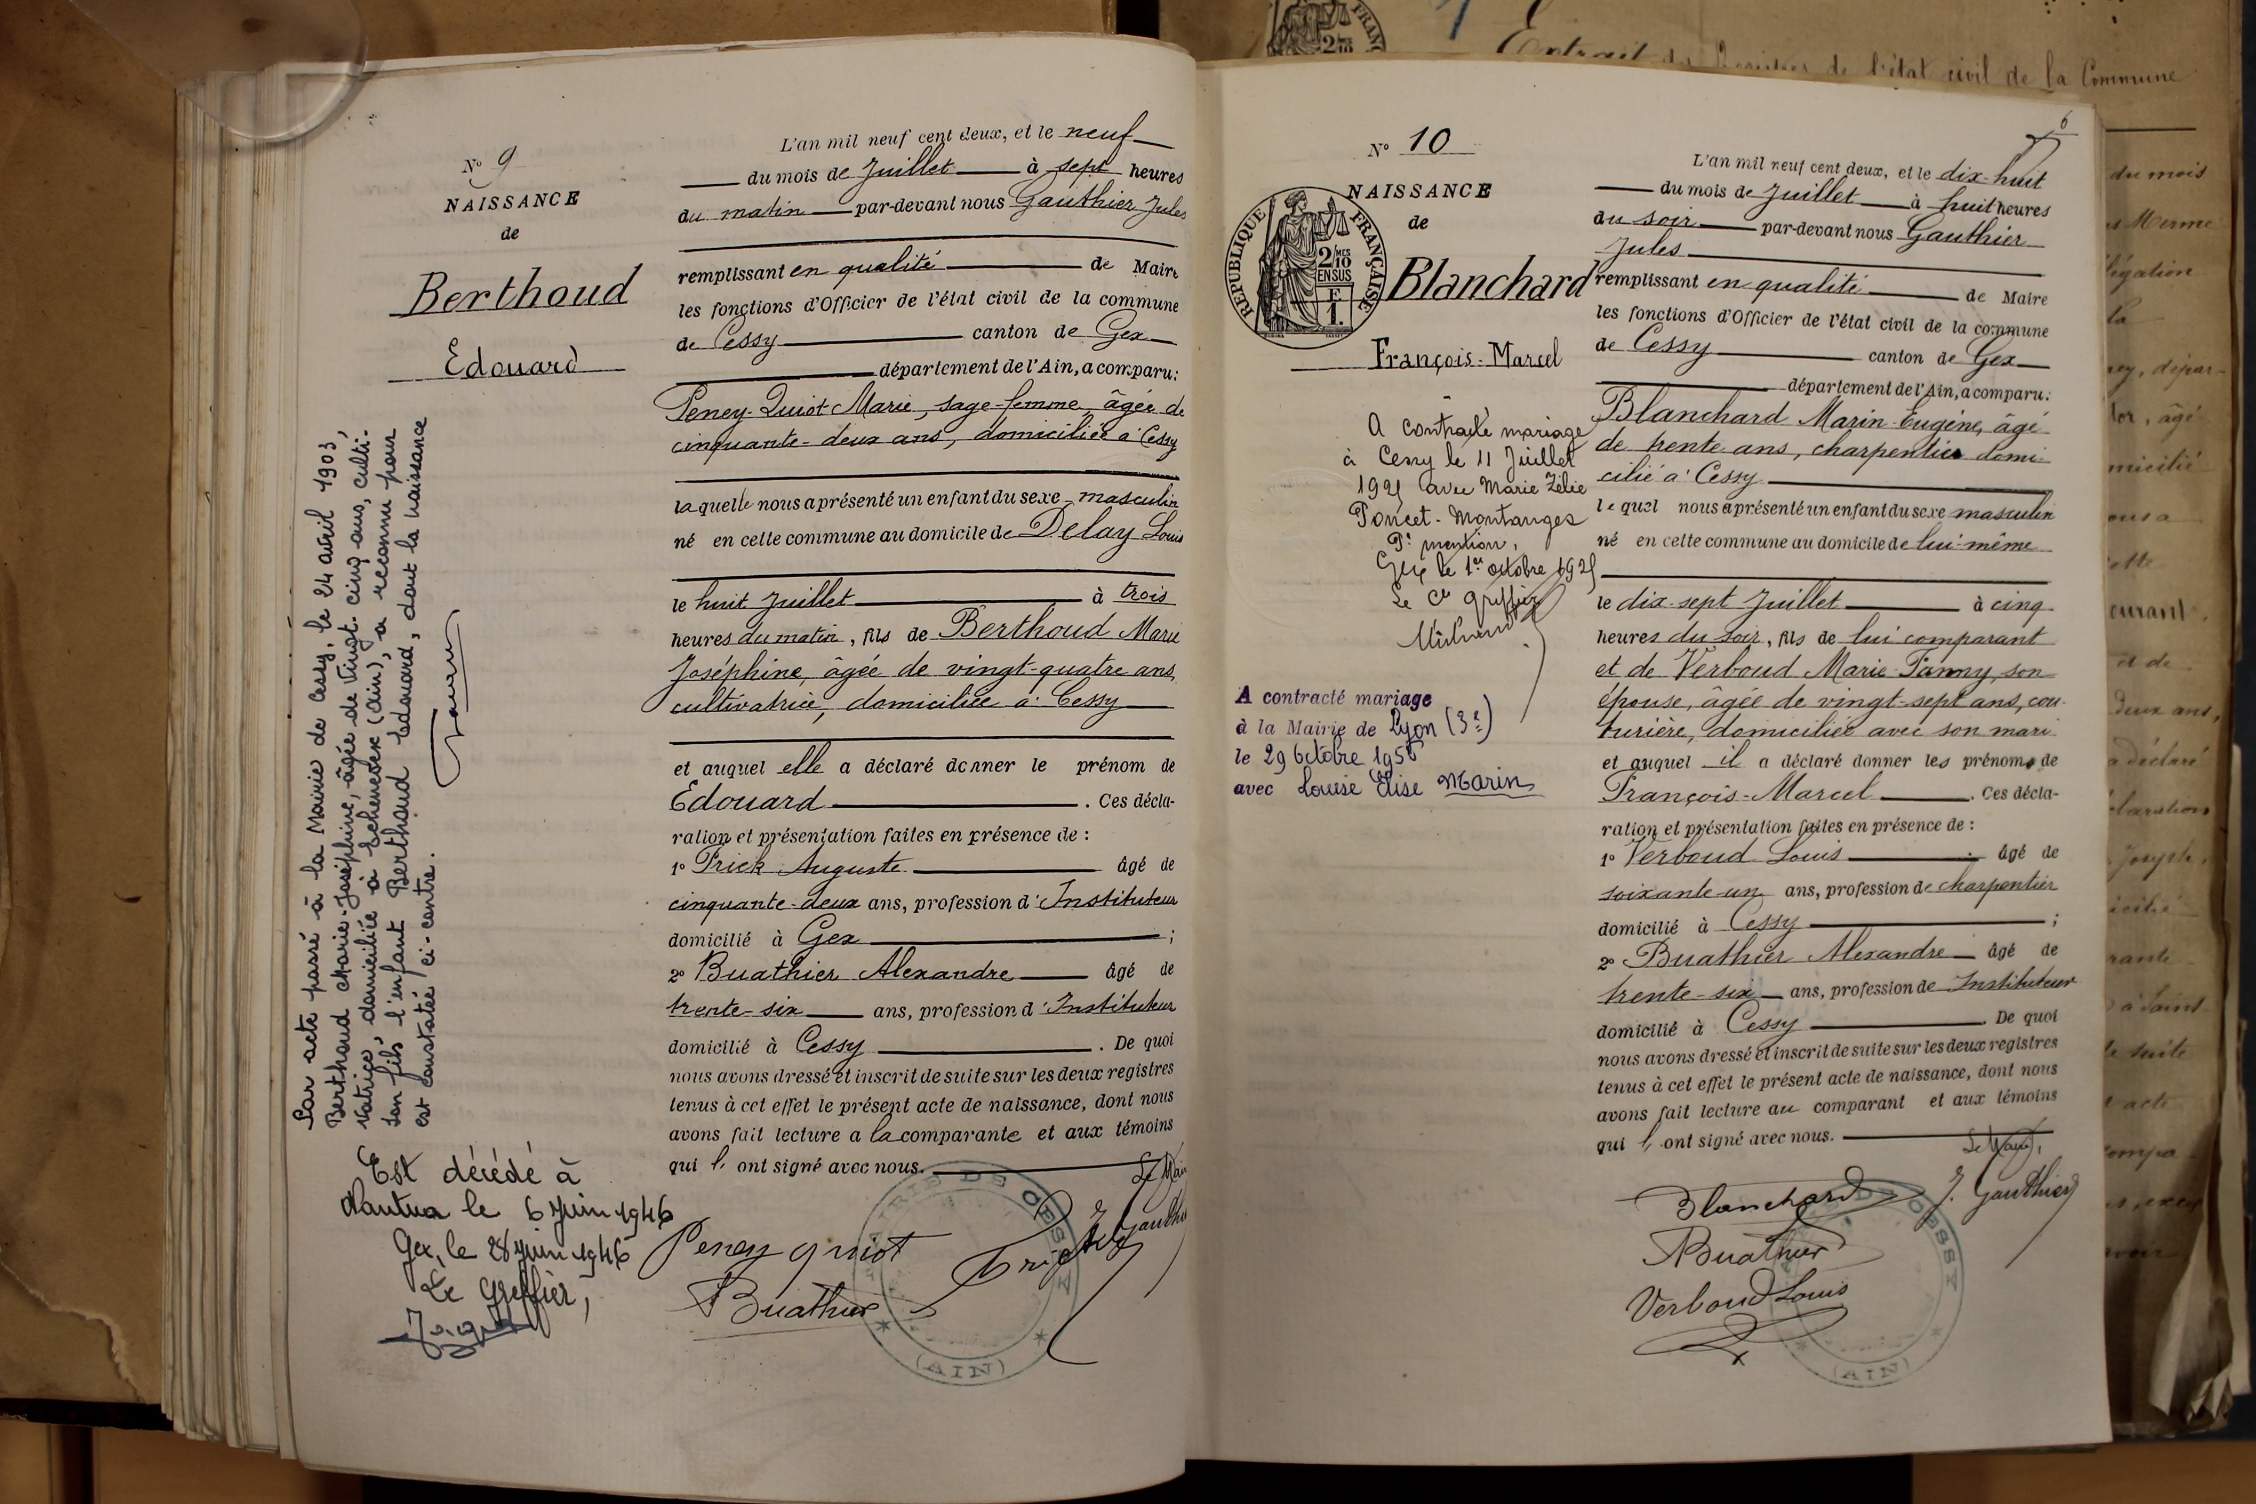 Extrait des Registres de l'état civil de la Commune
N° 9
NAISSANCE
de
Berthoud
Edouard
Par acte passé à la Mairie de Cessy, le 24 avril 1903,
Berthoud Marie-Joséphine, âgée de vingt-cinq ans, culti-
vatrice, domiciliée à Echenevex (Ain), a reconnu pour
son fils, l'enfant Berthoud Edouard, dont la naissance
est constatée ci-contre.
Est décédé à
Nantua le 6 juin 1946
Gex, le 28 juin 1946
Le Greffier,
L'an mil neuf cent deux, et le neuf
du mois de Juillet à sept heures
du matin par-devant nous Gauthier Jules
remplissant en qualité de Maire
les fonctions d'Officier de l'état civil de la commune
de Cessy canton de Gex
département de l'Ain, a comparu:
Peney-Quiot Marie, sage-femme, âgée de
cinquante-deux ans, domiciliée à Cessy
laquelle nous a présenté un enfant du sexe masculin
né en cette commune au domicile de Delay Louis
le huit Juillet à trois
heures du matin, fils de Berthoud Marie
Joséphine, âgée de vingt-quatre ans,
cultivatrice, domiciliée à Cessy
et auquel elle a déclaré donner le prénom de
Edouard. Ces décla-
ration et présentation faites en présence de :
1° Frick Auguste âgé de
cinquante-deux ans, profession d'Instituteur
domicilié à Gex ;
2° Buathier Alexandre âgé de
trente-six ans, profession d'Instituteur
domicilié à Cessy. De quoi
nous avons dressé et inscrit de suite sur les deux registres
tenus à cet effet le présent acte de naissance, dont nous
avons fait lecture a la comparante et aux témoins
qui l' ont signé avec nous.
Le Maire
J. Gauthier
Peney quiot
Buathier
MAIRIE DE CESSY
(AIN)
6
N° 10
NAISSANCE
de
Blanchard
François-Marcel
REPUBLIQUE FRANÇAISE
2/10 MES
EN SUS
F
1.
A contracté mariage
à Cessy le 11 Juillet
1925 avec Marie Zélie
Poncet-Montanges
Pr mention,
Gex le 1er octobre 1925
Le Cis greffier
A contracté mariage
à la Mairie de Lyon (3e)
le 29 Octobre 1956
avec Louise Elise Marin
L'an mil neuf cent deux, et le dix-huit
du mois de Juillet à huit heures
du soir par-devant nous Gauthier
Jules
remplissant en qualité de Maire
les fonctions d'Officier de l'état civil de la commune
de Cessy canton de Gex
département de l'Ain, a comparu:
Blanchard Marin-Eugène, âgé
de trente ans, charpentier domi-
cilié à Cessy
lequel nous a présenté un enfant du sexe masculin
né en cette commune au domicile de lui-même
le dix-sept Juillet à cinq
heures du soir, fils de lui comparant
et de Verboud Marie-Fanny, son
épouse, âgée de vingt-sept ans, cou-
turière, domiciliée avec son mari
et auquel il a déclaré donner les prénoms de
François-Marcel. Ces décla-
ration et présentation faites en présence de :
1° Verboud Louis âgé de
soixante-un ans, profession de charpentier
domicilié à Cessy ;
2° Buathier Alexandre âgé de
trente-six ans, profession de Instituteur
domicilié à Cessy. De quoi
nous avons dressé et inscrit de suite sur les deux registres
tenus à cet effet le présent acte de naissance, dont nous
avons fait lecture au comparant et aux témoins
qui l' ont signé avec nous.
Le Maire,
Blanchard
J. Gauthier
Buathier
Verboud Louis
CESSY
(AIN)